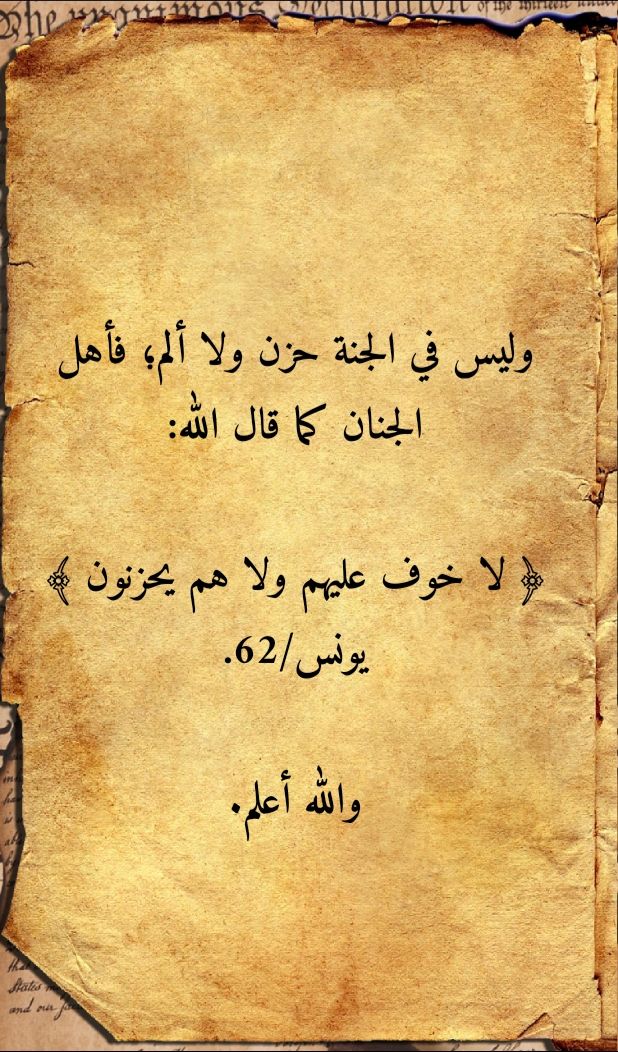 The unanimous Declaration of the thirteen united
وليس في الجنة حزن ولا ألم؛ فأهل
الجنان كما قال الله:
﴿ لا خوف عليهم ولا هم يحزنون ﴾
يونس/62.
والله أعلم.
States
and our